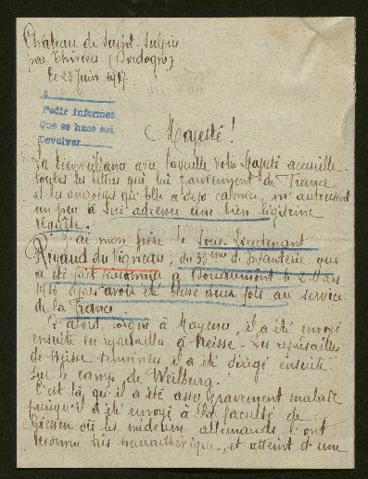 Château de Saint-Sulpice
par Thiviers (Dordogne)
le 25 Juin 1917
Pedir informes
Que se hace así
Devolver
Majesté!
La bienveillance avec laquelle votre Majesté accueille
toutes les lettres qui lui parviennent de France
et les angoisses qu'elle a déjà calmées, m'autorisent
un peu à lui adresser une bien légitime
requête.
J'ai mon frère le Sous-Lieutenant
Rigaud du Vigneau, du d'Infanterie qui
a été fait prisonnier à Douaumont le 2 Mars
1916 après avoir été blessé deux fois au service
de la France
D'abord soigné à Mayence, il a été envoyé
ensuite en représailles à Neisse. Les représailles
de Neisse terminées il a été dirigé ensuite
sur le camp de Weilburg.
C'est là qu'il a été assez gravement malade
puisqu'il a été envoyé à la faculté de
Giessen où les médecins allemands l'ont
reconnu très, et atteint d'une